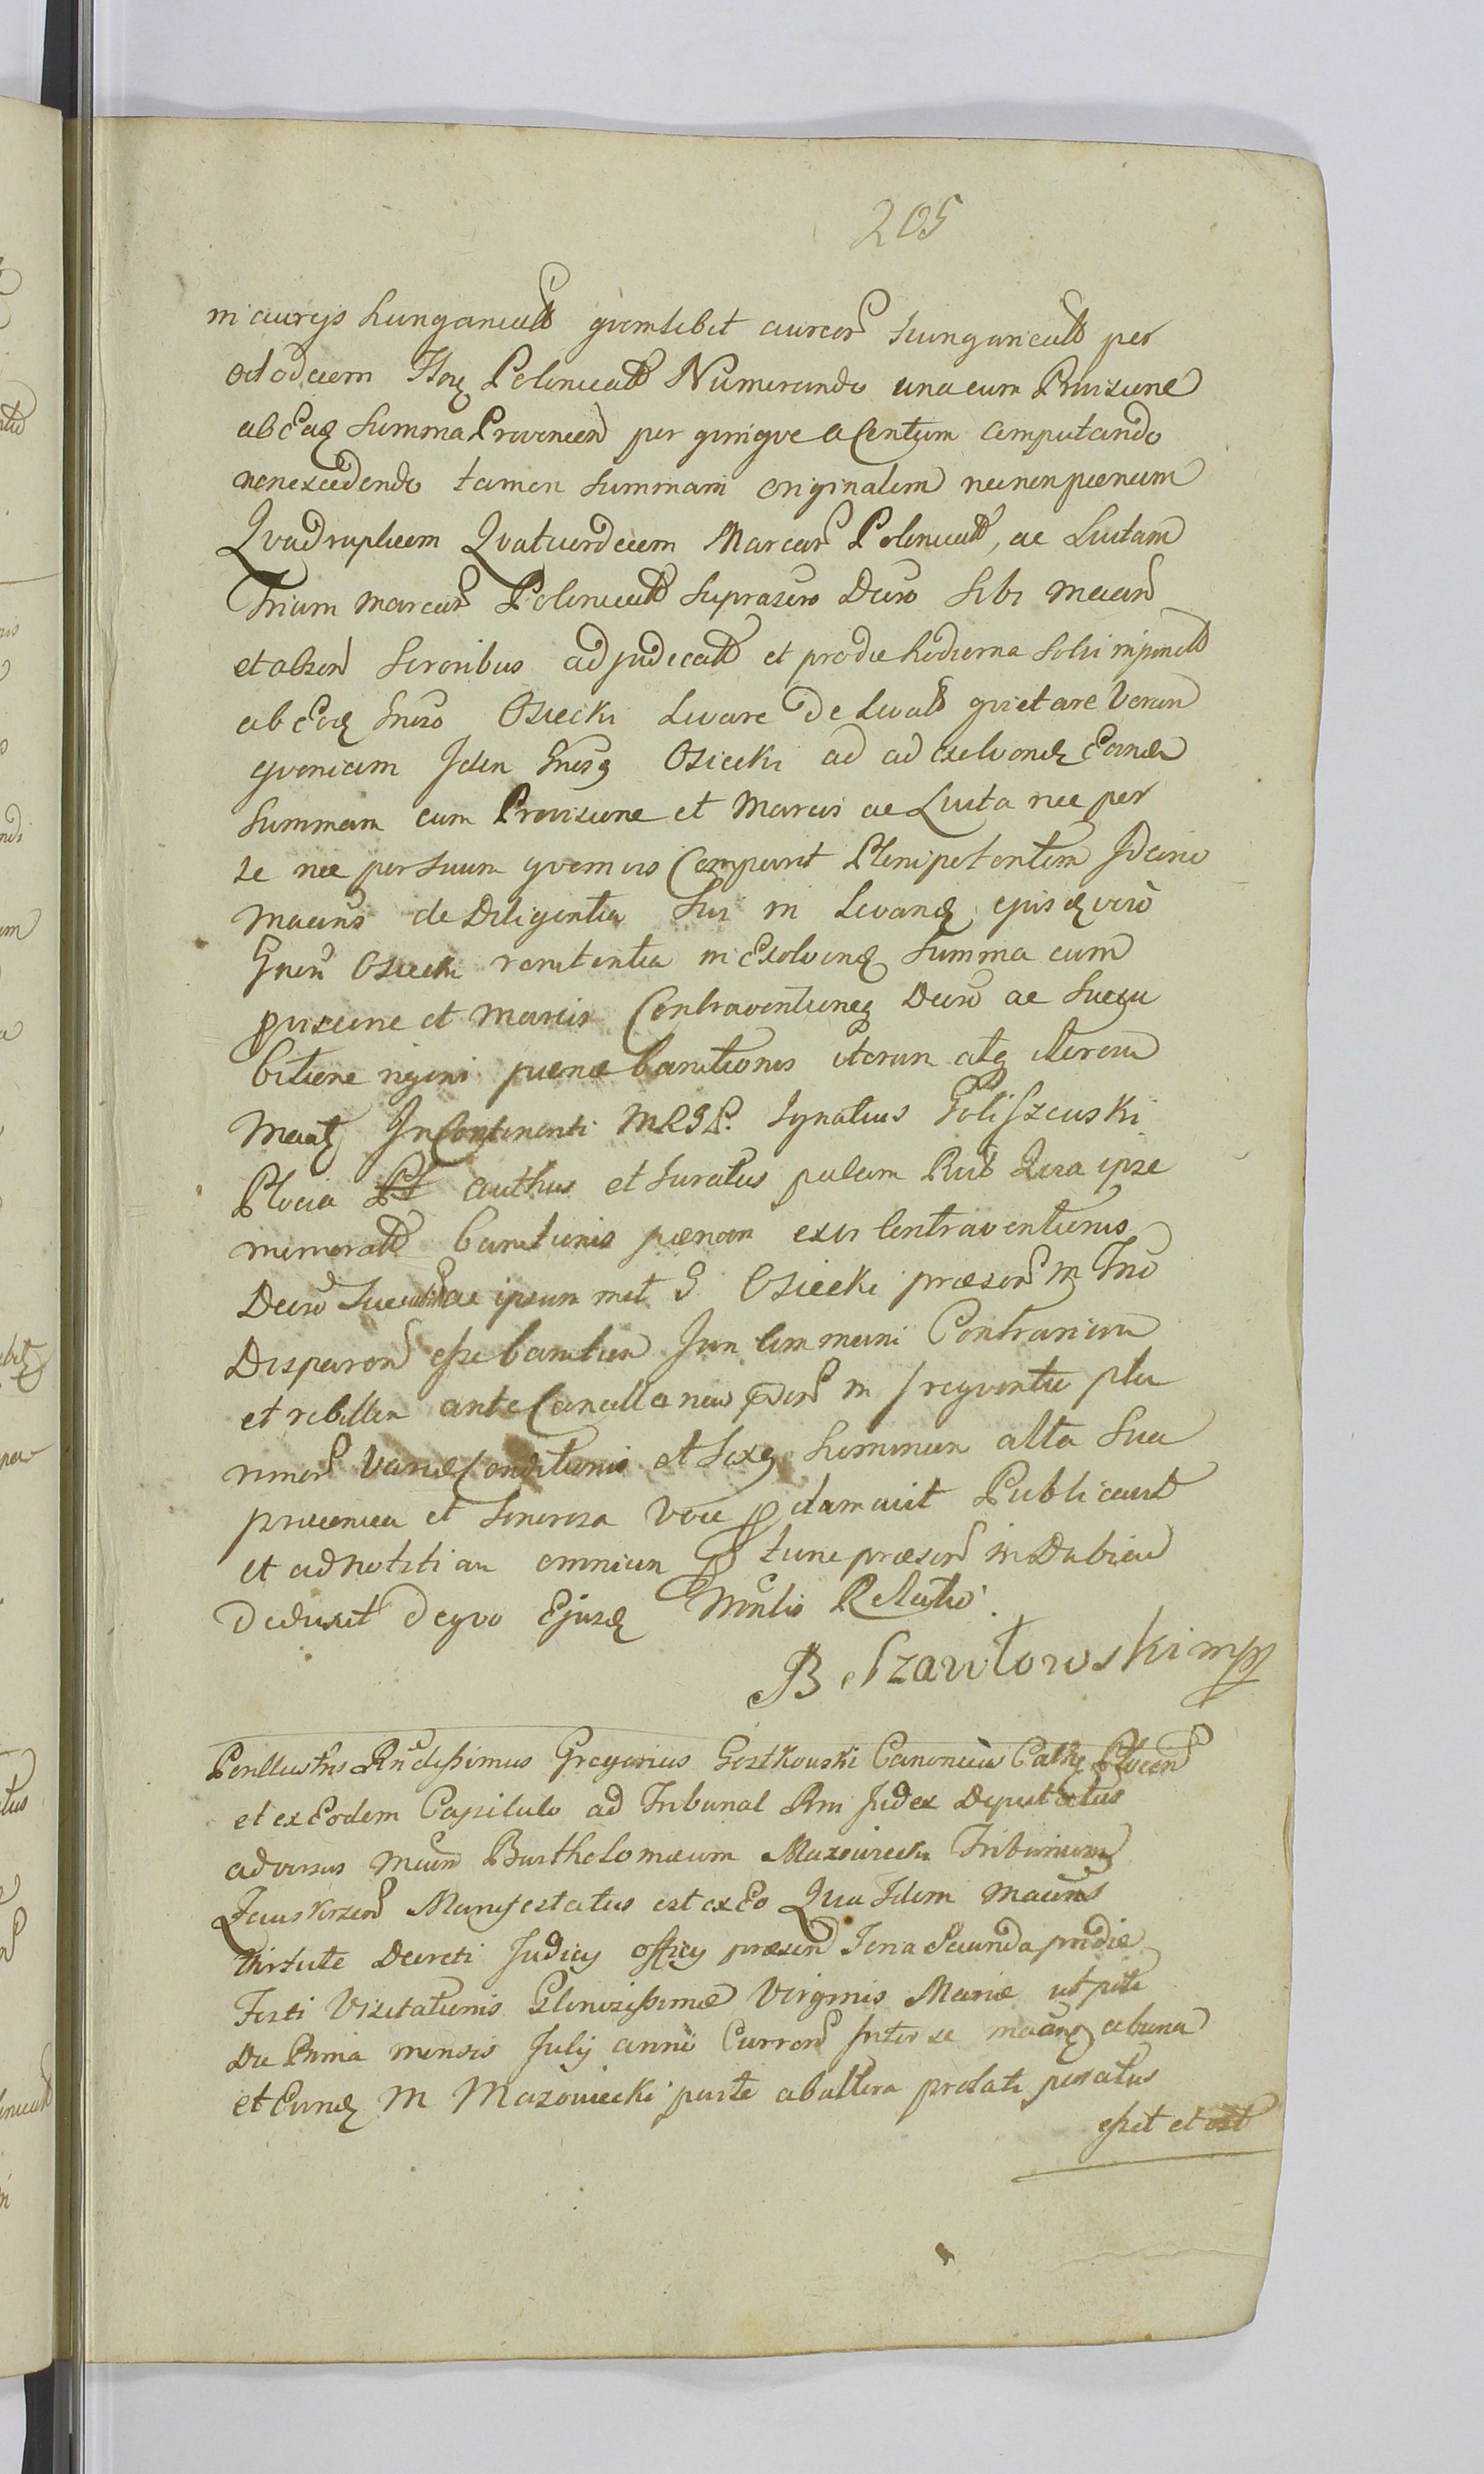 205
in aureis hungarical quemlibet aureor hungarical per
octodecem Flor Polonical Numerando una cum Provisione
ab Eadq Summa Provenien per quinque a Centum computando
non excedendo tamen summam originalem necnon pœnam
Quadruplicem Quatuordecem Marcar Polonical, ac Luitam
Trium marcar Polonical suprascro Decro sibi
et solven adjudicat et pro die hodierna solvi
ab Eodq Gnoso Osiecki Levare de Levat quietare Veren
quoniam Iden Gnosq Osiecki ad ad exolvendq Eandem
Summam cum Provisione et Marcis ac Luita nec per
se nec per suum quemvis Comparuit Plenipotentem Idcirco
de Diligentia sui in Levandq ejusdq vero
Gnosi Osiecki renitentia in Exolvendq Summa cum
provisione et Marcis Contraventioneq Decro ac Succu
bitione rigori pœnæ banitionis iterum atq iterum
Incontinenti MRGP. Ignatius Goliszewski
Plocia authus et Juratus palam ipse
memorat banitionis pœnam ex vi Contraventionis
Decro ac ipsum met G Osiecki præsen in Trio
esse banitum Jun Communi Contrarium
et rebellen ante Cancellariam in frequentia plu
rimor variæ Conditionis et Sexq hominum alta sua
præconica et sonorosa voce proclamavit Publicavit
et ad notitiam omnium tunc præsen in Dubiam
Deduxit de quo Ejusdq Mrlis Relatio.
B Szawłowski mpp
Perillustris Rndissimus Gregorius Gostkowski Canonicus Cathq Plocen
et ex Eodem Capitulo ad Tribunal Rni Judex Deputatus
adversus Mcum Bartholomæum Mazowiecki Tribunum
Zawskrzen Manifestatus est ex Eo Quia Idem
Virtute Decreti Judicy officy præsen Feria Secunda pridie
Festi Visitationis Gloriosissimæ Virginis Mariæ utpote
Die Prima mensis July anni Curren Inter se ab una
et Eundq M Mazowiecki parte ab altera prolati paratus
esset et est